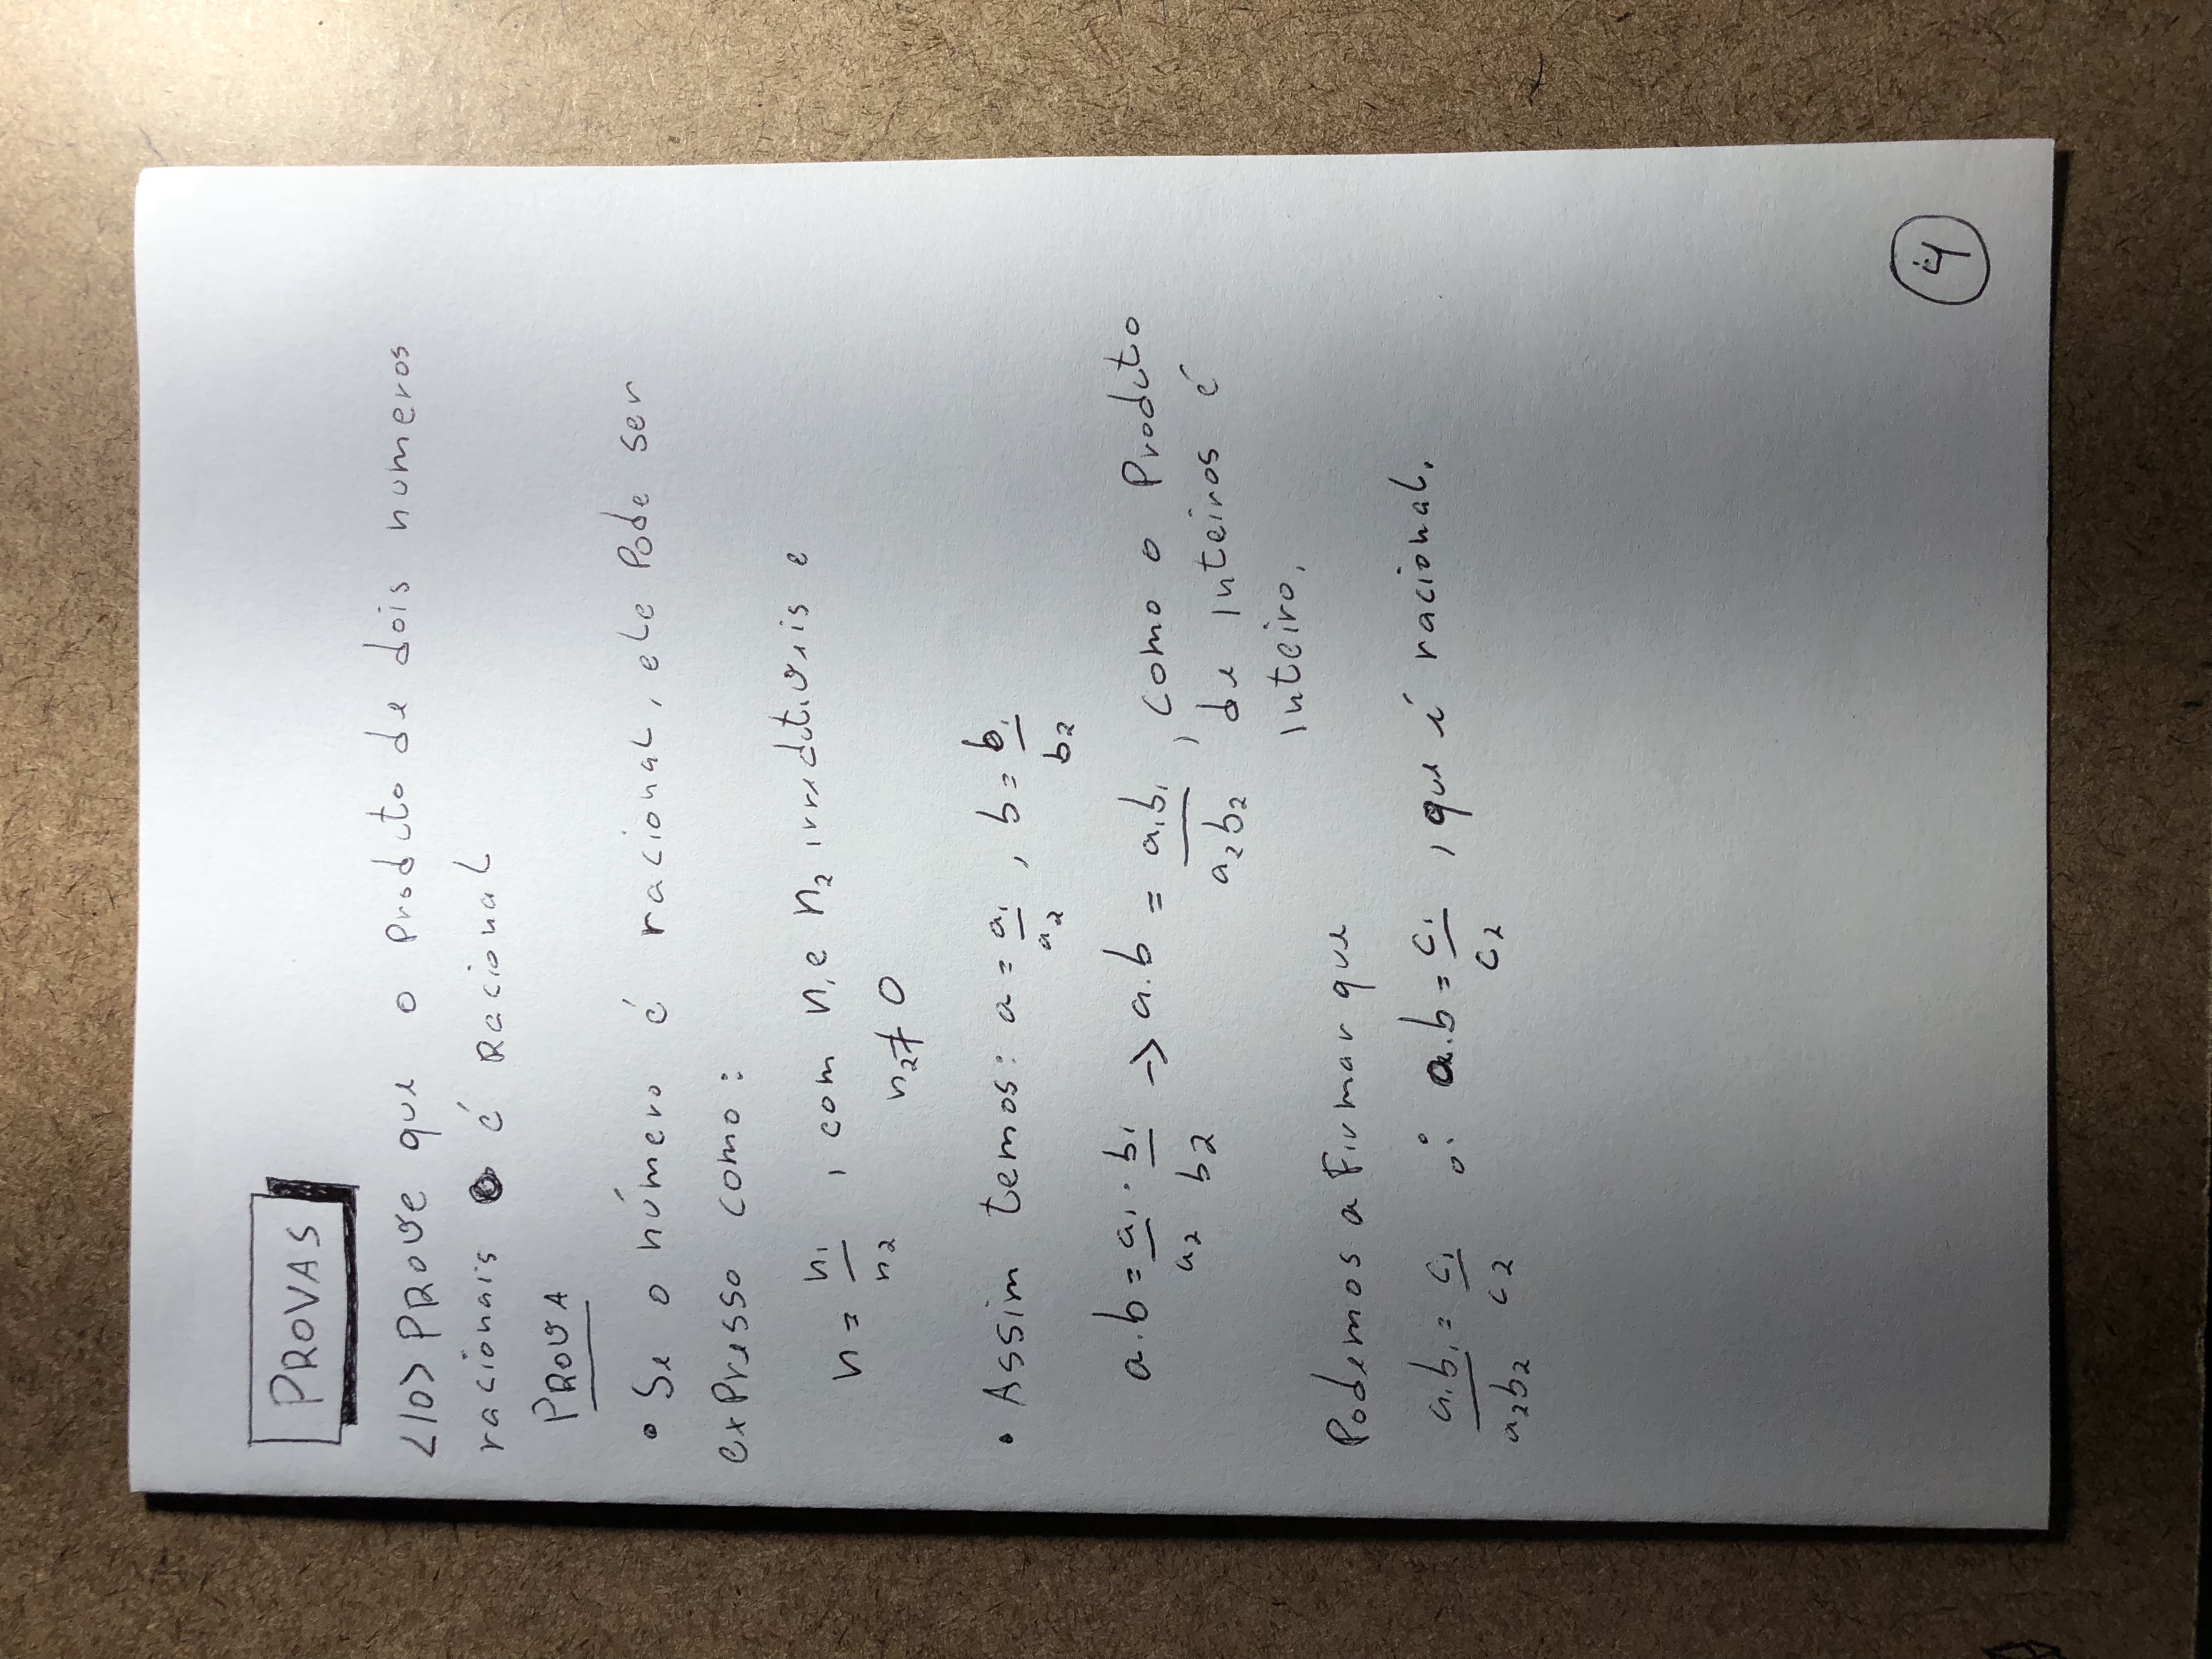 PROVAS
<10> PROVE que o Produto de dois numeros
racionais é Racional
PROVA
• Se o número é racional, ele Pode ser
exPresso como:
n = n₁/n₂ , com n₁ e n₂ irredutiveis e
n₂ ≠ 0
• Assim temos: a = a₁/a₂ , b = b₁/b₂
a.b = a₁/a₂ · b₁/b₂ → a.b = a₁b₁/a₂b₂ , como o Produto
de Inteiros é
Inteiro,
Podemos aFirmar que
a₁b₁/a₂b₂ = c₁/c₂ ∴ a.b = c₁/c₂ , que é racional.
4